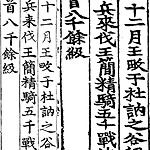 十二月王畋于杜訥之谷
兵來伐王簡精騎五千戰
首八千餘級
十二月王畋于杜訥之谷
兵來伐王簡精騎五千戰
首八千餘級